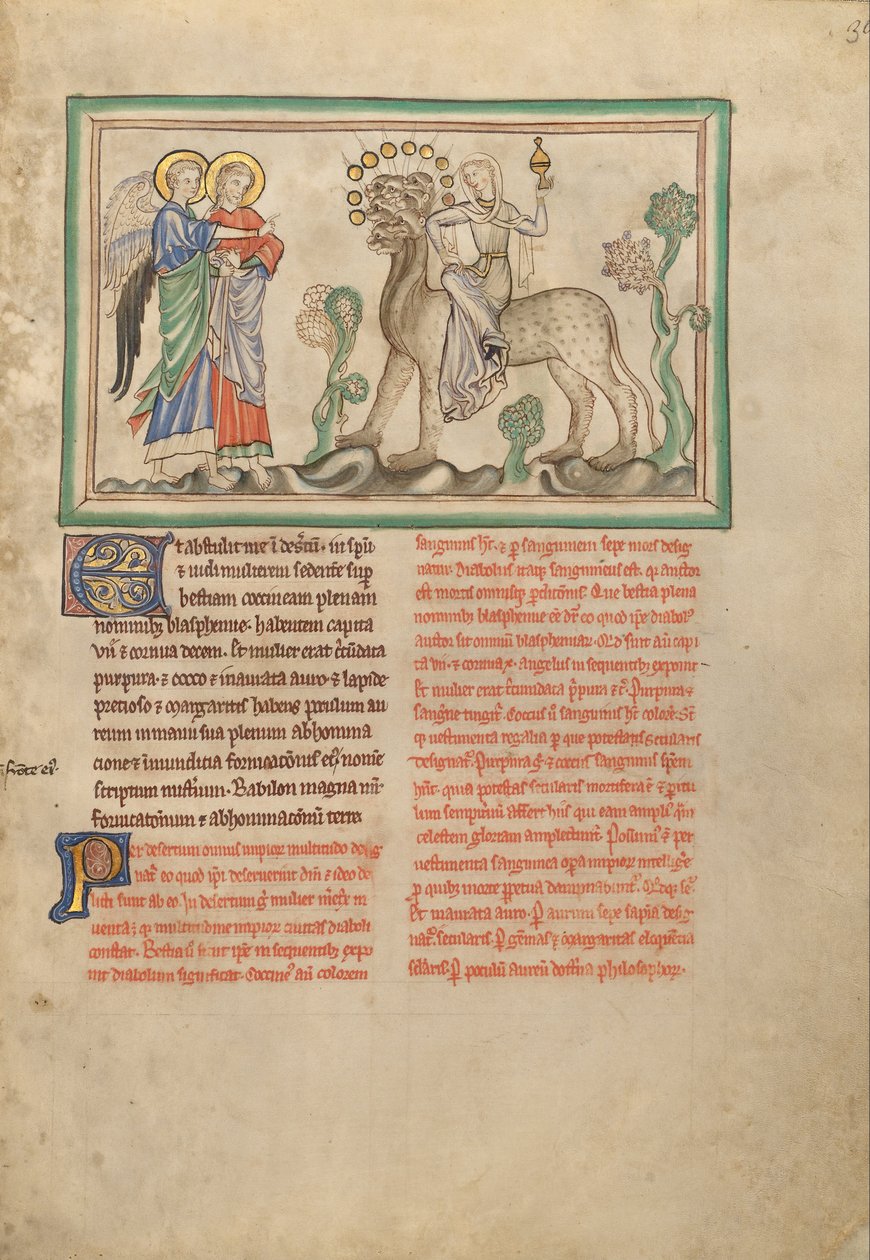 30
Et abstulit me ĩ des̃tũ· in sp̃u
⁊ uidi mulierem sedente sup̃
bestiam coccineam plenam
nominibꝫ blasphemie· habentem capita
vii· ⁊ cornua decem· Et mulier erat c̃cũdata
purpura· ⁊ cocco ⁊ inaurata auro· ⁊ lapide
precioso ⁊ margaritis habens poculum au
reum in manu sua plenum abhomina
cione ⁊ inmundicia fornicatõnis ei᷒/ nomẽ
fronte ei᷒·
scriptum mist̃ium· Babilon magna mr̃
fornicatõnum ⁊ abhominatõnũ terre
Per desertum omnis impioꝝ multitudo desig
nat̃ eo quod ip̃i deseruerint dñm ⁊ ideo de
licti sunt ab eo· In desertum g̃ mulier m̃et̃x in
uenta ẽ q̃ multitudine impioꝝ ciuitas diaboli
constat· Bestia ũ sicut ip̃e in sequentibꝫ expo
nit diabolum significat· Coccine᷒ aũ colorem
sanguinis hr̃t· ⁊ ꝑ sanguinem sepe mors desig
natur· Diabolus itaqꝫ sanguineus est· q̃ auctor
est mortis omnisqꝫ ꝑdicõnis· Que bestia plena
nominibꝫ blasphemie eẽ dr̃ eo quod ip̃e diabol᷒
auctor sit omniũ blasphemiaꝝ· Q̃d sunt aũ capi
ta vii· ⁊ cornua x· angelus in sequentibꝫ exponit
Et mulier erat c̃cũdata p̃pura ⁊ c̃· Purpura ⁊
sang̃ne tingit̃· Coccus ũ sanguinis hr̃t colorẽ· St̃
q̃ vestimenta regalia ꝑ que potestatis secularis
designat̃· Purpura g̃· ⁊ coccus sanguinis spẽm
hñt· quia potestas secularis mortifera ẽ ⁊ ꝑitu
lum sempitnũ affert hiis qui eam ampli᷒ q̃m
celestem gloriam amplectunt̃· Possum᷒ ⁊ per
vestimenta sanguinea oꝑa impioꝝ intellig̃e
ꝑ quibꝫ morte ꝑpetua dampnabunt̃· Q̃d qꝫ se·
Et inaurata auro· Ꝑ aurum sepe sapĩa desig
nat̃· secularis· Ꝑ gẽmas ⁊ margaritas eloquẽcia
sclaris· Ꝑ poculũ aureũ dost̃na philosophoꝝ·